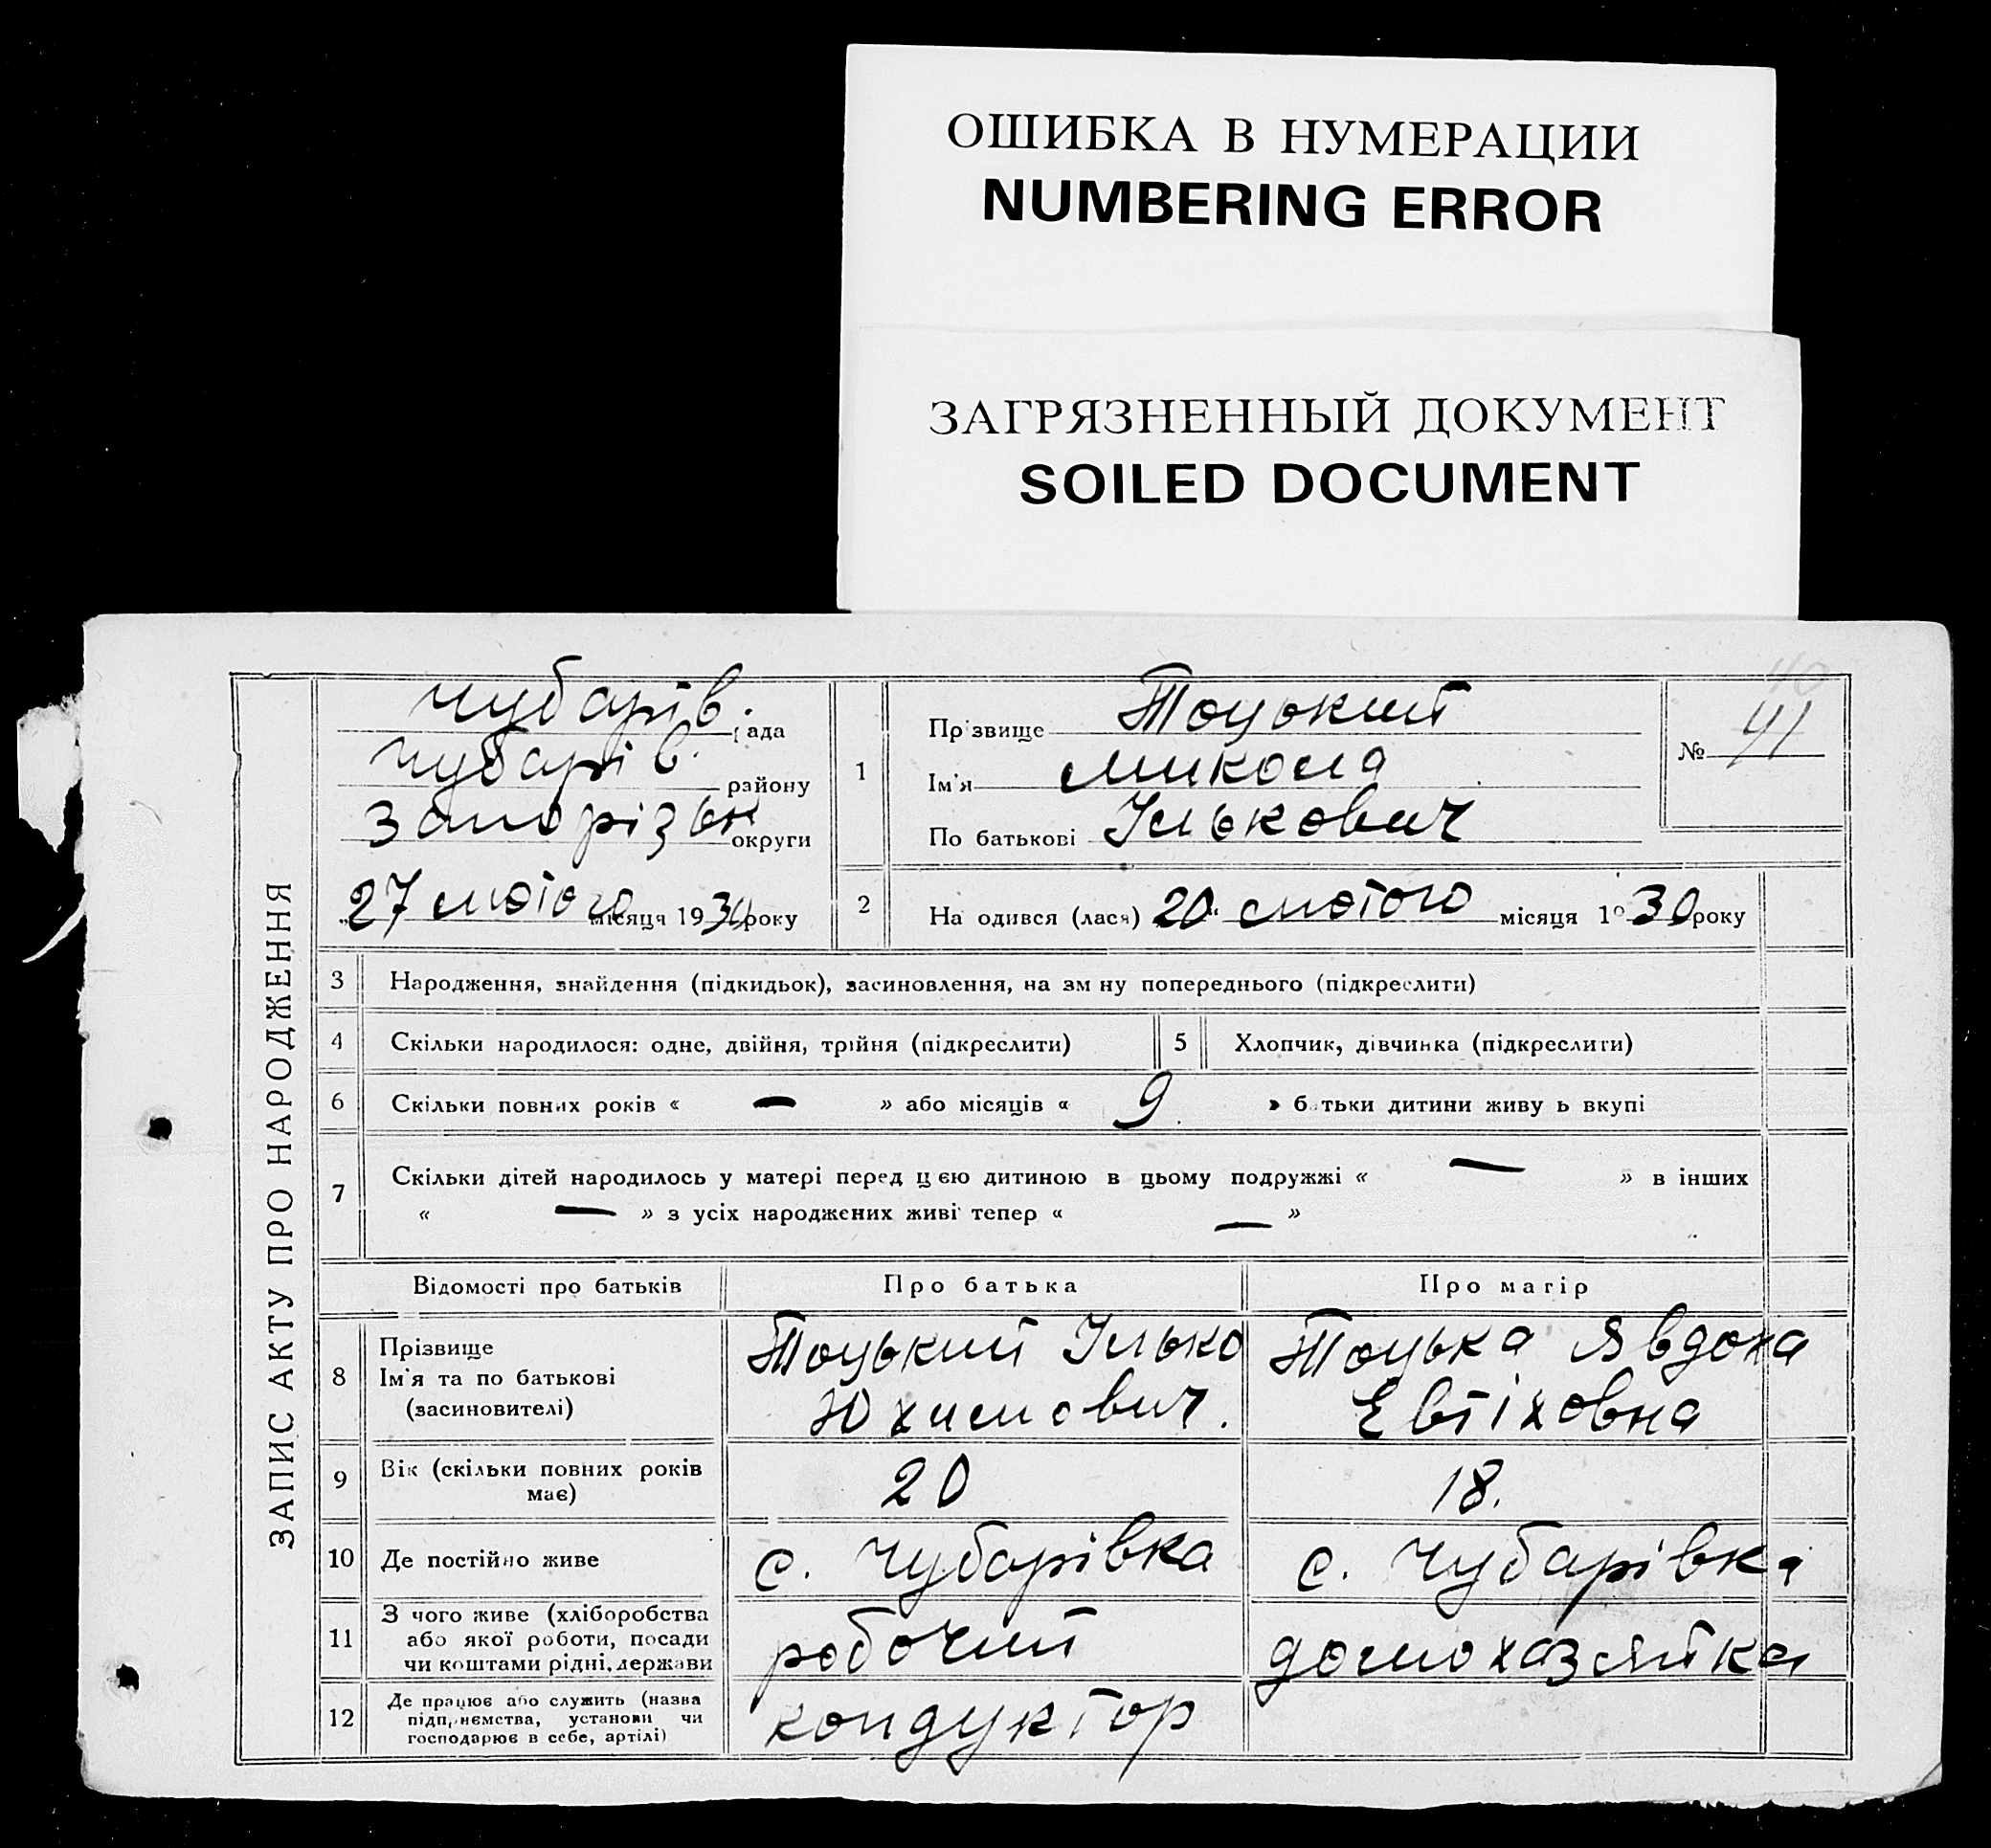 ОШИБКА В НУМЕРАЦИИ
NUMBERING ERROR
ЗАГРЯЗНЕННЫЙ ДОКУМЕНТ
SOILED DOCUMENT
ЗАПИС АКТУ ПРО НАРОДЖЕННЯ
Чубарів. рада
Чубарів. району
Запорізьк округи
27 лютого місяця 1930 року
1
Прізвище Тоцький
Ім'я Микола
По батькові Ількович
40
№ 41
2
На одився (лася) 20 " лютого місяця 1930 року
3 Народження, знайдення (підкидьок), засиновлення, на зм ну попереднього (підкреслити)
4 Скільки народилося: одне, двійня, трійня (підкреслити)
5 Хлопчик, дівчинка (підкреслити)
6 Скільки повних років « — » або місяців « 9 » б тьки дитини живу ь вкупі
7 Скільки дітей народилось у матері перед цєю дитиною в цьому подружжі « — » в інших
« — » з усіх народжених живі тепер « — »
Відомості про батьків Про батька Про матір
8 Прізвище
Ім'я та по батькові
(засиновителі)
Тоцький Ілько
Юхимович.
Тоцька Явдоха
Евтіховна
9 Вік (скільки повних років
має)
20
18.
10 Де постійно живе
с. Чубарівка
с. Чубарівка
11 З чого живе (хліборобства
або якої роботи, посади
чи коштами рідні, держави
робочий
домохазяйка
12 Де працює або служить (назва
підприємства, установи чи
господарює в себе, артілі)
кондуктор